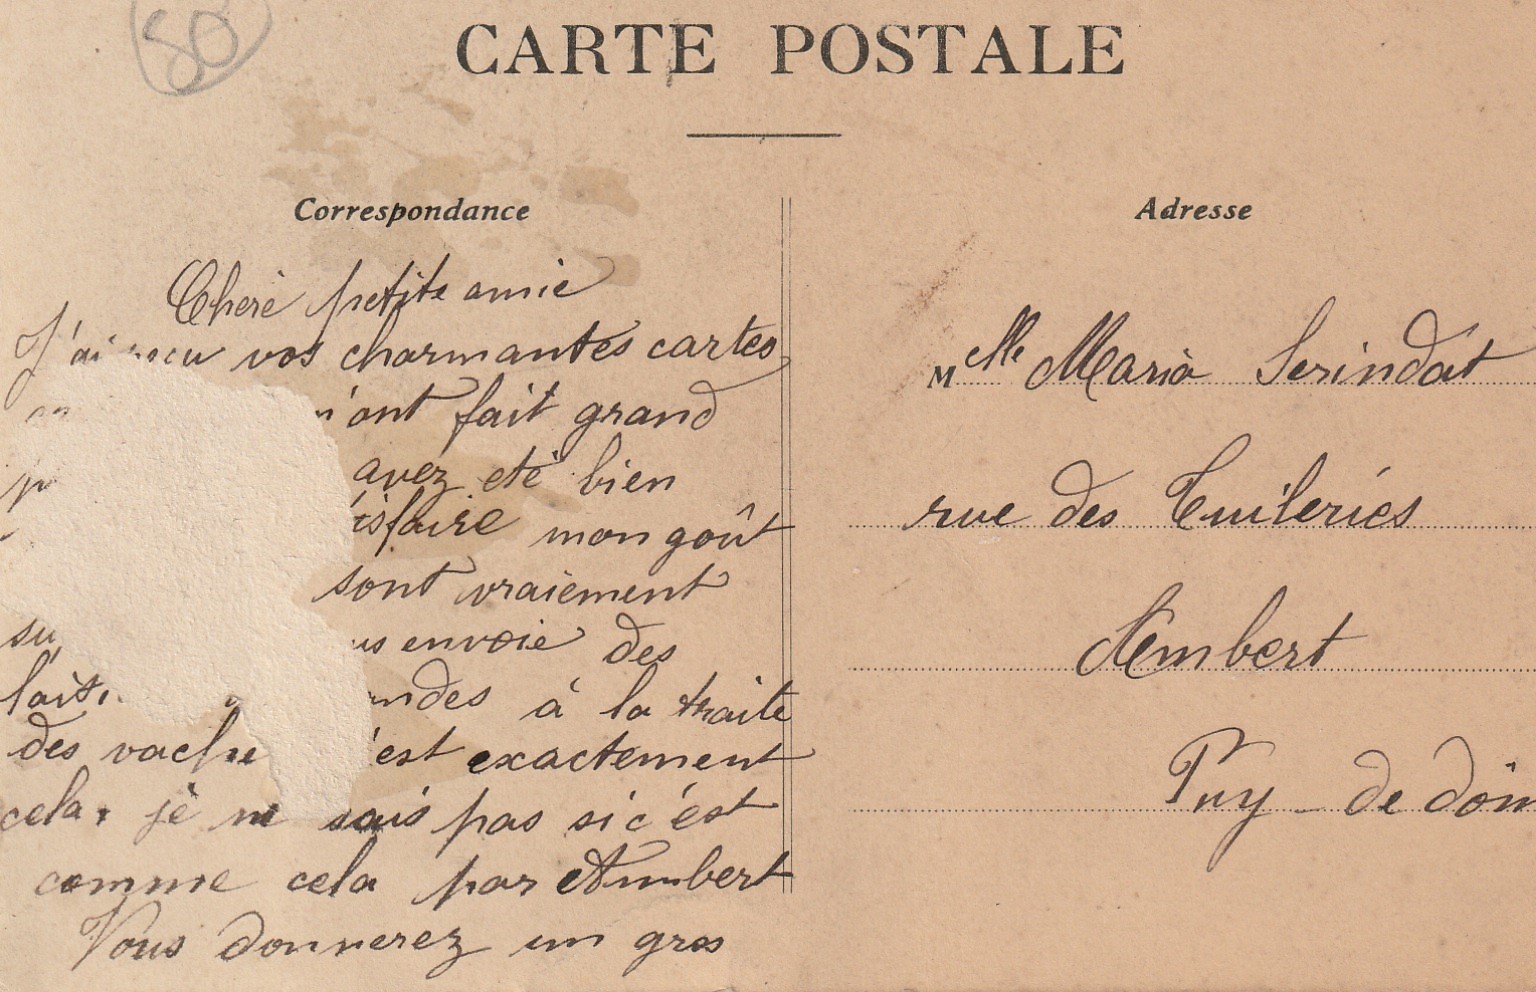 50
CARTE POSTALE
Correspondance
Adresse
Cheré petite amie
J'ai reçu vos charmantes cartes
m'ont fait grand
avez eté bien
isfaire mon goût
sont vraiement
su us envoie des
lait andes à la traite
des vache c'est exactement
cela. je ne sais pas si c'est
comme cela par Ambert
Vous donnerez un gros
Melle Maria Serindat
rue des Tuileries
Ambert
Puy-de dôm